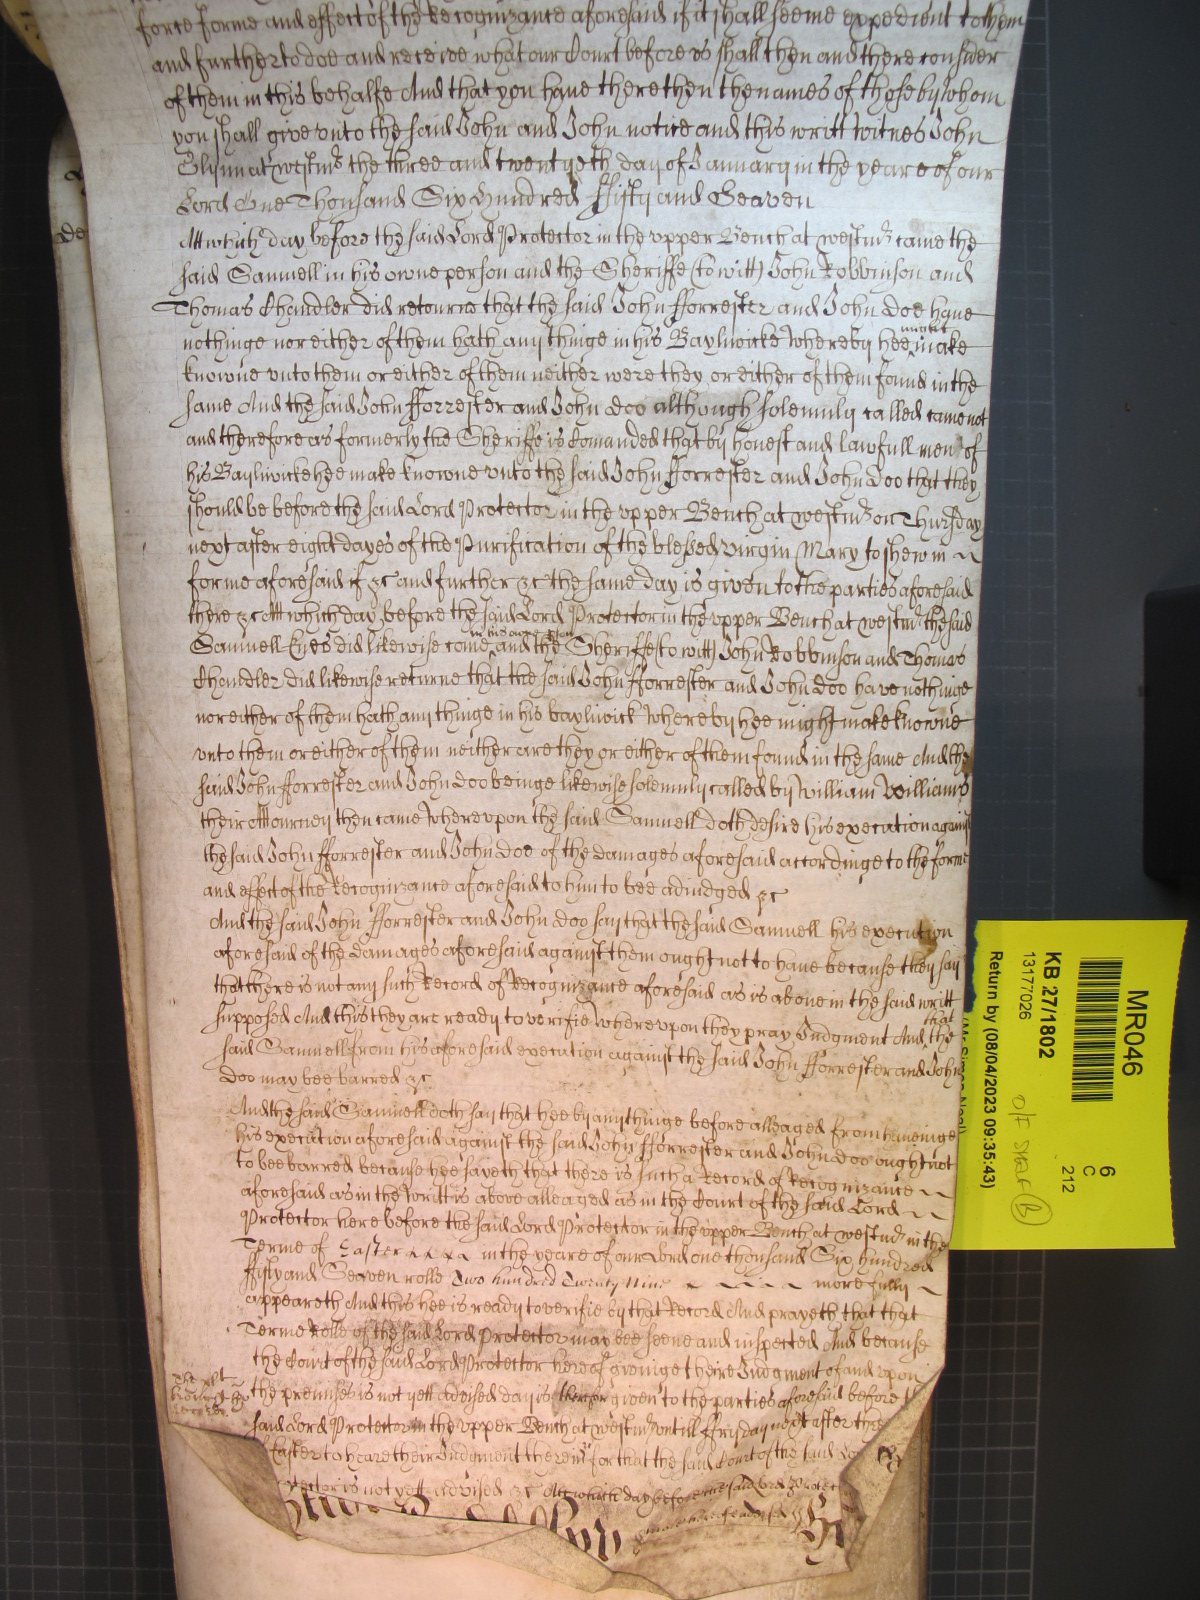 force forme and effect of the Recognizance aforesaid if it shall seeme expedient to them
and further to doe and receive what our Court before us shall then and there consider
of them in this behalfe And that you have there then the names of those by whom
you shall give unto the said John and John notice and this writt witnes John
Glynn at westmr the three and twentyeth day of January in the yeare of our
Lord One Thousand Six Hundred Fifty and Seaven
Att which day before the said Lord Protector in the upper Bench at westmr came the
said Samuell in his owne person and the Sheriffe (to witt) John Robbinson and
Thomas Chandler did retourne that the said John Fforrester and John Doe have
nothinge nor either of them hath any thinge in his Bayliwicke whereby hee might make
knowne unto them or either of them neither were they or either of them found in the
same And the said John Fforrester and John Doo although solemnly called came not
and therefore as formerly the Sheriffe is Comanded that by honest and lawfull men of
his Bayliwicke hee make knowne unto the said John Fforrester and John Doo that they
should be before the said Lord Protector in the upper Bench at westmr on Thursday
next after eight dayes of the Purification of the blessed virgin Mary to shew in
forme aforesaid if &c and further &c the same day is given to the parties aforesaid
there &c Att which day before the said Lord Protector in the upper Bench at westmr the said
Samuell did likewise come in his owne pson and the Sheriffe (to witt) John Robbinson and Thomas
Chandler did likewise returne that the said John Fforrester and John Doo have nothinge
nor either of them hath any thinge in his bayliwick whereby hee might make knowne
unto them or either of them neither are they or either of them found in the same And the
said John Fforrester and John Doo beinge likewise solemnly called by William Williams
their Attourney then came whereupon the said Samuell doth desire his execution against
the said John Fforrester and John Doe of the damages aforesaid accordinge to the forme
and effect of the Recognizance aforesaid to him to bee adiudged &c
And the said John Fforrester and John Doo say that the said Samuell his execution
aforesaid of the damages aforesaid against them ought not to have because they say
that there is not any such Record of Recognizance aforesaid as is above in the said writt
supposed And this they are ready to verifie whereupon they pray Judgment And that the
said Samuell from his aforesaid execution against the said John Fforrester and John
Doo may bee barred &c
And the said Samuell doth say that hee by any thinge before alleaged from haveinge
his execution aforesaid against the said John Fforrester and John Doo ought not
to bee barred because hee sayeth that there is such a Record of Recognizance
aforesaid as in the writt is above alleaged as in the Court of the said Lord
Protector here before the said Lord Protector in the upper Bench at westmr in the
Terme of Easter in the yeare of our Lord one thousand Six hundred
fifty and Seaven rolle Two hundred Twenty Nine more fully
appeareth And this hee is ready to verifie by that Record And prayeth that that
Terme Rolle of the said Lord Protector may bee seene and inspected And because
the Court of the said Lord Protector here of giveinge theire Judgment of and upon
the premisses is not yett advised day is given to the parties aforesaid before
said Lord Protector in the upper Bench at westmr untill Friday next after the
of Easter to heare their Judgment for that the said Court of the said
is not yett advised &c Att which day before the said Lord Protec
MR046
KB 27/1802
13177026
Return by (08/04/2023 09:35:43)
6
C
212